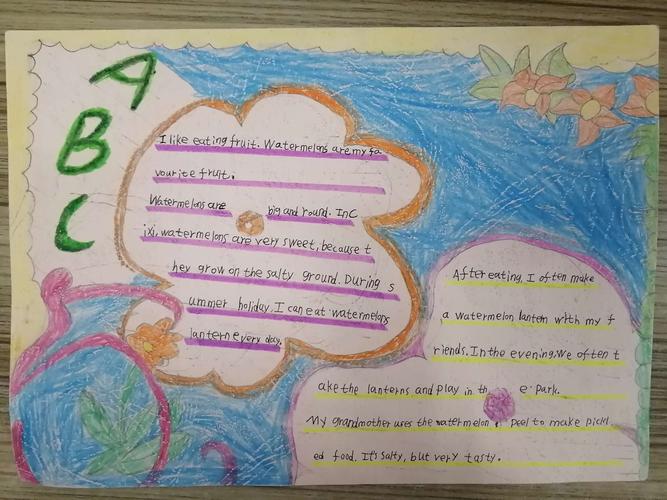 A
B
C
I like eating fruit. Watermelons are my fa
vourite fruit.
Watermelons are big and round. In C
ixi, watermelons are very sweet, because t
hey grow on the salty ground. During s
ummer holiday. I can eat watermelons
lantern every day.
After eating, I often make
a watermelon lantern with my f
riends. In the evening, We often t
ake the lanterns and play in th e park.
My grandmother uses the watermelon peel to make pickl
ed food. It's salty, but very tasty.